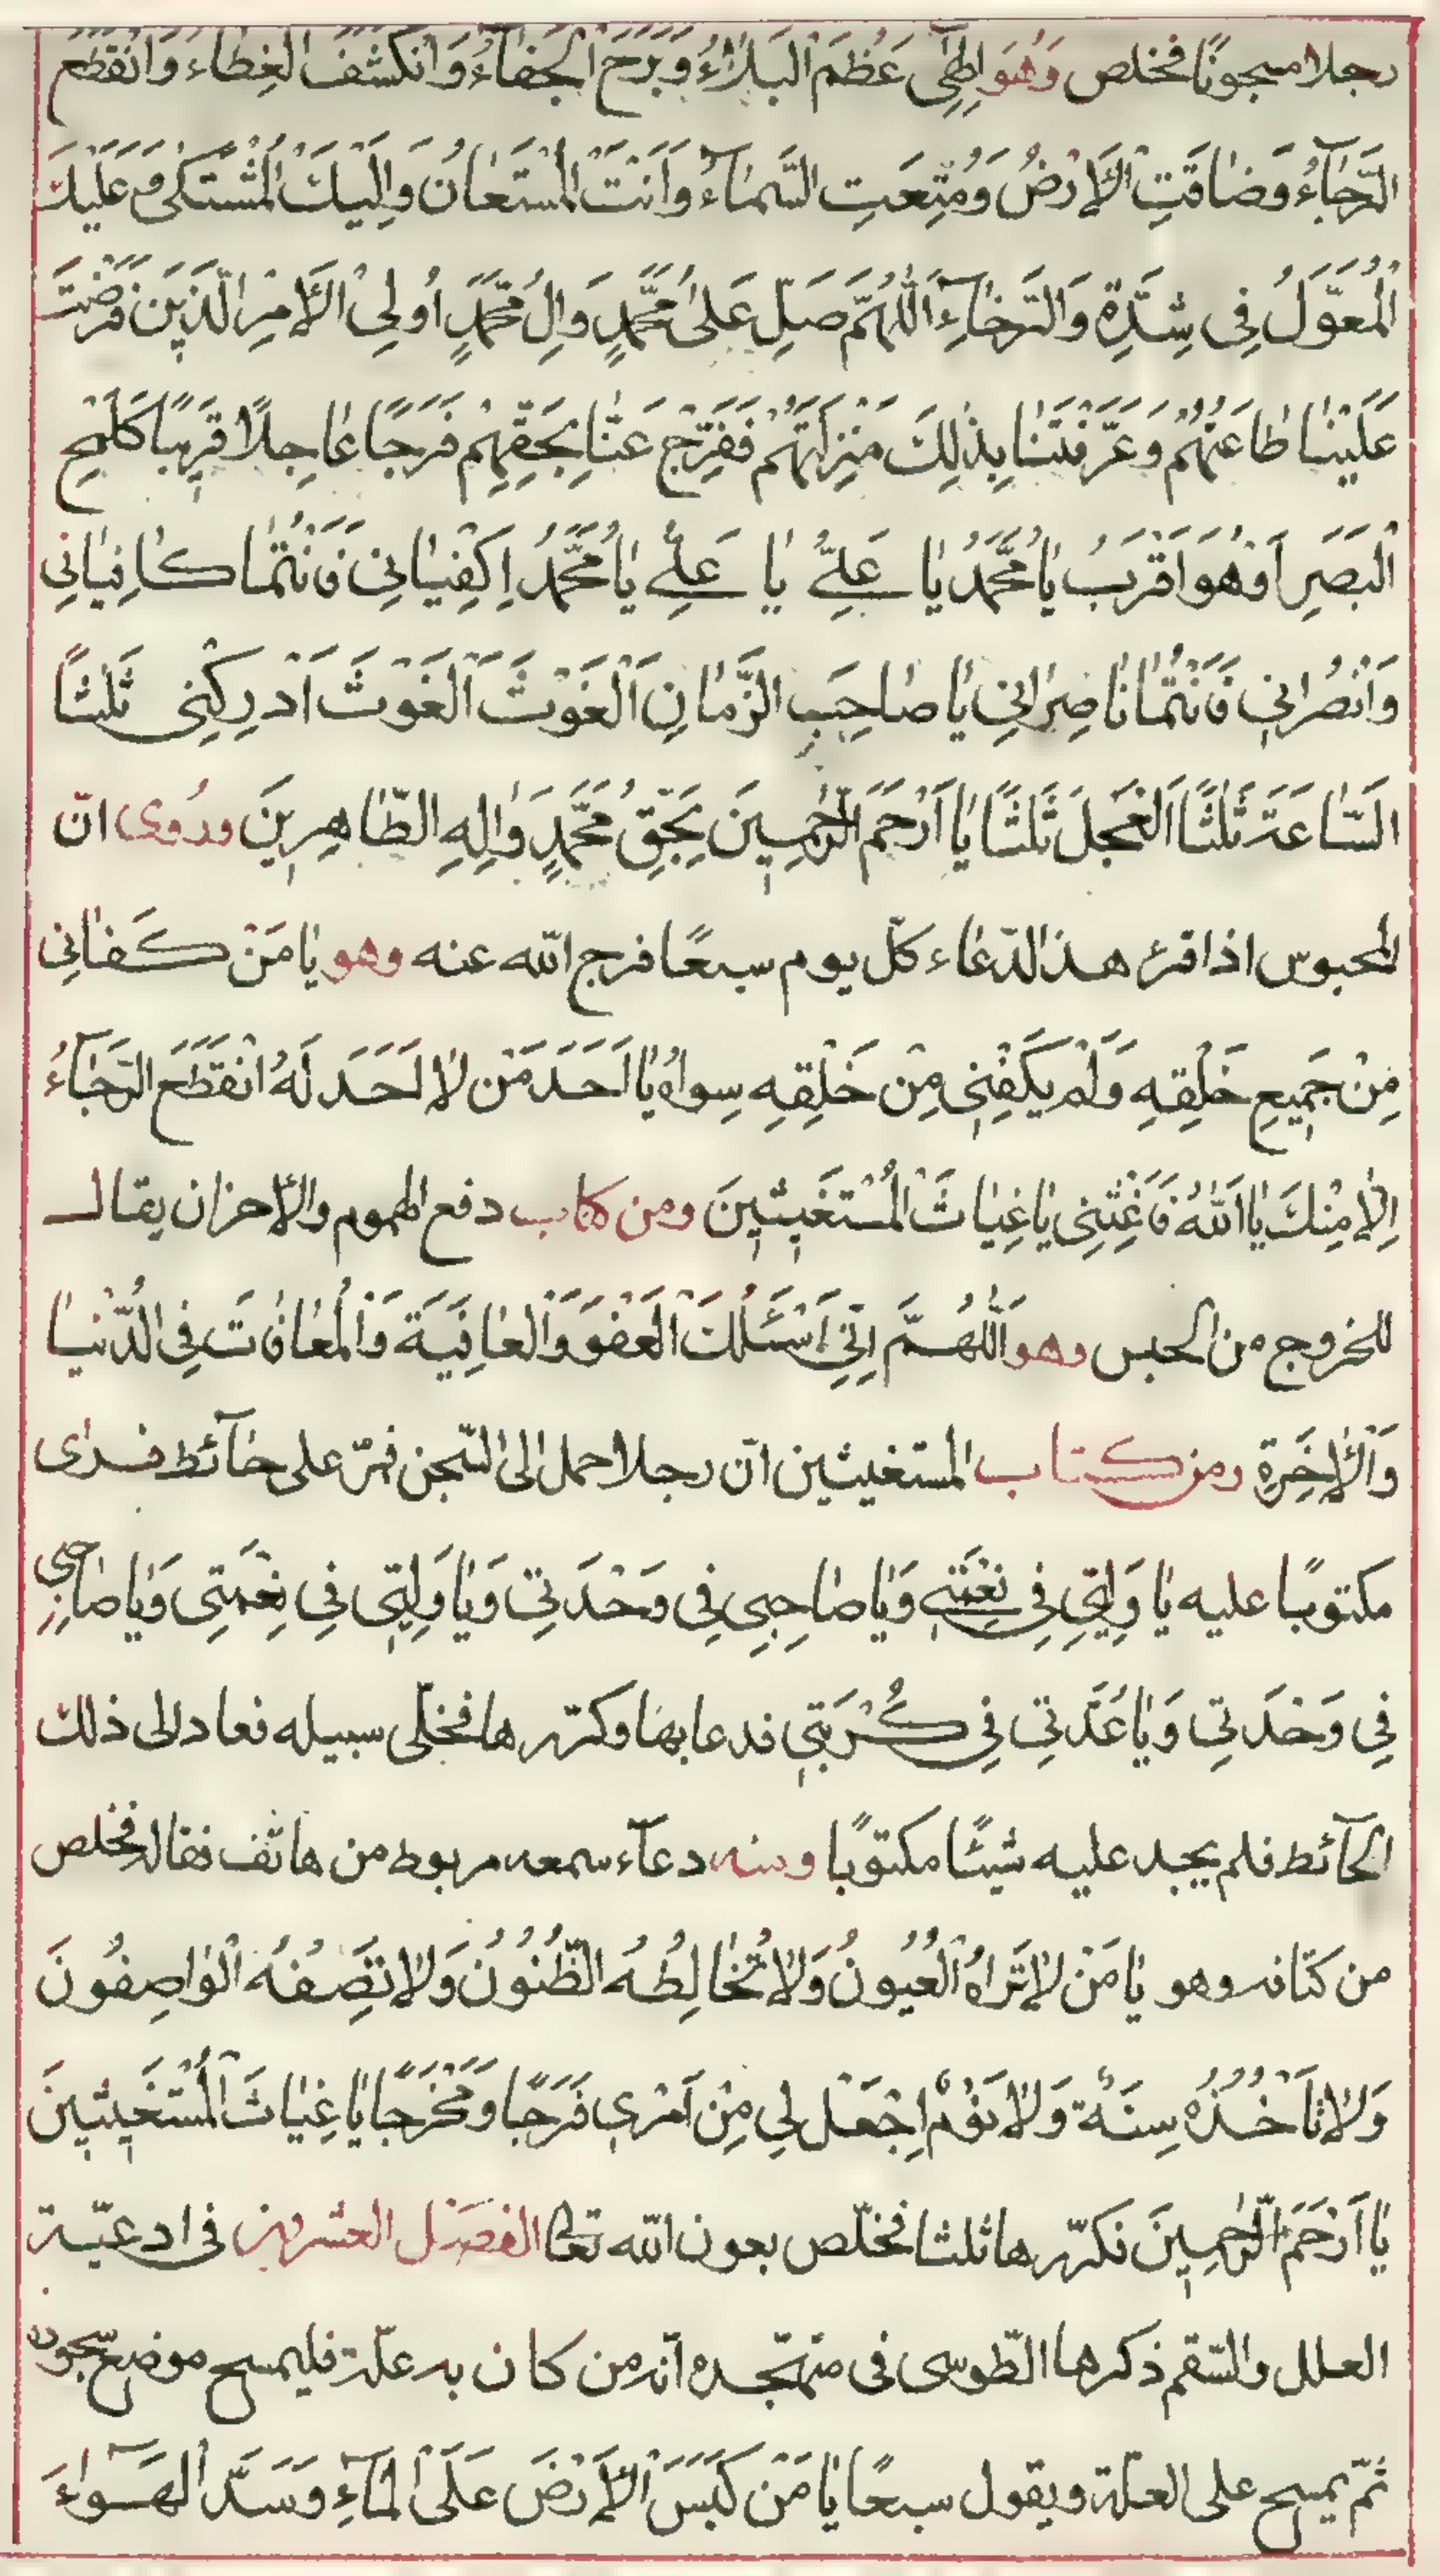 رجلا مسجونًا فخلص وَهُوَ اِلٰهِى عَظُمَ الْبَلَاۤءُ وَبَرِحَ الْخَفَاۤءُ وَانْكَشَفَ الْغِطَاۤءُ وَانْقَطَعَ
الرَّجَاۤءُ وَضَاقَتِ الْاَرْضُ وَمُنِعَتِ السَّمَاۤءُ وَاَنْتَ الْمُسْتَعَانُ وَاِلَيْكَ الْمُشْتَكٰى وَعَلَيْكَ
الْمُعَوَّلُ فِى شِدَّةِ وَالرَّخَاۤءِ اَللّٰهُمَّ صَلِّ عَلٰى مُحَمَّدٍ وَاٰلِ مُحَمَّدٍ اُولِى الْاَمْرِ الَّذِينَ فَرَضْتَ
عَلَيْنَا طَاعَتَهُمْ وَعَرَّفْتَنَا بِذٰلِكَ مَنْزِلَتَهُمْ فَفَرِّجْ عَنَّا بِحَقِّهِمْ فَرَجًا عَاجِلًا قَرِيبًا كَلَمْحِ
الْبَصَرِ اَوْ هُوَ اَقْرَبُ يَا مُحَمَّدُ يَا عَلِىُّ يَا عَلِىُّ يَا مُحَمَّدُ اِكْفِيَانِى فَاَنْتُمَا كَافِيَانِى
وَانْصُرَانِى فَاَنْتُمَا نَاصِرَانِى يَا صَاحِبَ الزَّمَانِ اَلْغَوْثَ اَلْغَوْثَ اَدْرِكْنِى ثَلٰثًا
السَّاعَةَ ثَلٰثًا اَلْعَجَلَ ثَلٰثًا يَا اَرْحَمَ الرّٰحِمِينَ بِحَقِّ مُحَمَّدٍ وَاٰلِهِ الطَّاهِرِينَ وروى انّ
المحبوس اذا قرئ هذا الدّعاء كلّ يوم سبعًا فرج الله عنه وهو يَا مَنْ كَفَانِى
مِنْ جَمِيعِ خَلْقِهِ وَلَمْ يَكْفِنِى مِنْ خَلْقِهِ سِوَاهُ يَا اَحَدَ مَنْ لَا اَحَدَ لَهُ انْقَطَعَ الرَّجَاۤءُ
اِلَّا مِنْكَ يَا اَللّٰهُ فَاَغِثْنِى يَا غِيَاثَ الْمُسْتَغِيثِينَ ومن كتاب دفع الهموم والاحزان يقال
للخروج من الحبس وهو اَللّٰهُمَّ اِنِّى اَسْئَلُكَ الْعَفْوَ وَالْعَافِيَةَ وَالْمُعَافَاتَ فِى الدُّنْيَا
وَالْاٰخِرَةِ ومن كتاب المستغيثين انّ رجلا حمل الى السّجن فمرّ على حاۤئط فراى
مكتوبًا عليه يَا وَلِيِّى فِى نِعْمَتِى وَيَا صَاحِبِى فِى وَحْدَتِى وَيَا وَلِيِّى فِى نِعْمَتِى وَيَا صَاحِبِى
فِى وَحْدَتِى وَيَا عُدَّتِى فِى كُرْبَتِى فدعا بها وكرّرها فخلّى سبيله فعاد الى ذلك
الحاۤئط فلم يجد عليه شيئًا مكتوبًا ومنه دعاۤء سمعه مربوط من هاتف فقاله فخلص
من كتافه وهو يَا مَنْ لَا تَرَاهُ الْعُيُونُ وَلَا تُخَالِطُهُ الظُّنُونُ وَلَا تَصِفُهُ الْوَاصِفُونَ
وَلَا تَاْخُذُهُ سِنَةٌ وَلَا نَوْمٌ اِجْعَلْ لِى مِنْ اَمْرِى فَرَجًا وَمَخْرَجًا يَا غِيَاثَ الْمُسْتَغِيثِينَ
يَا اَرْحَمَ الرّٰحِمِينَ فكرّرها ثلثا فخلّص بعون الله تعالى الفصل العشرون فى ادعيّة
العلل والسّقم ذكرها الطّوسى فى متهجّده انّه من كان به علّة فليمسح موضع سجوده
ثمّ يمسح على العلّة ويقول سبعًا يَا مَنْ كَبَسَ الْاَرْضَ عَلَى الْمَاۤءِ وَسَدَّ الْهَوَاۤءَ